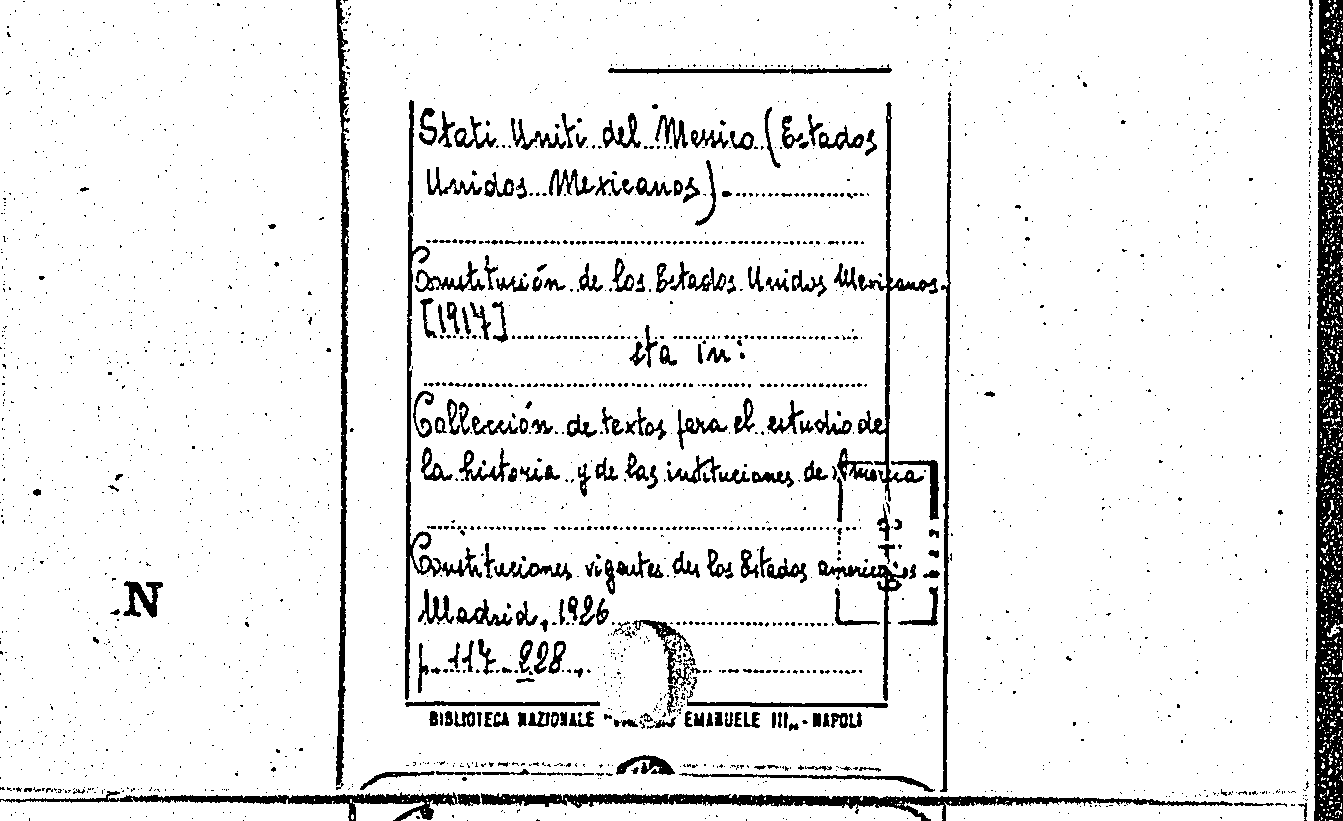 Stati Uniti del Messico (Estados
Unidos Mexicanos).
Constitución de los Estados Unidos Mexicanos.
[1917]
sta in:
Collección de textos para el estudio de
la historia y de las instituciones de America
Constituciones vigentes des los Estados americanos.
Madrid, 1926
p. 117-228.
N
BIBLIOTECA NAZIONALE EMANUELE III„ - NAPOLI